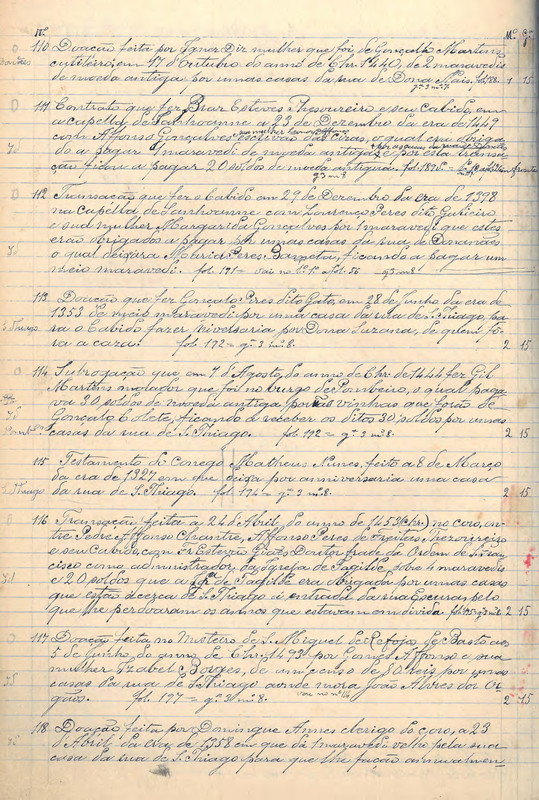 Nº Mº Gª
110 Doação feita por Ignez Diz mulher que foi de Gonçallo Martins
cutilleiro, em 17 d'Outubro do anno de Chr. 1440, de 2 maravedis
de moeda antiga por umas casas da rua de Dona Mais. fol. 188. 1 15
gª 3 mº 7
111 Contrato que fez Braz Esteves Thesoureiro e seu Cabido, em
a capella de Sanhoanne a 23 de Dezembro da era de 1449
com Affonso Gonçalves escrivão das Cizas, o qual era obriga
do a pagar 1 maravedi de moeda antiga e por esta transa
ção ficou a pagar 20 soldos de moeda antigua.
gª 3 mº 8
112 Transação que fez o Cabido em 29 de Dezembro da era de 1398
na Capella de Sanhoanne com Lourenço Peres dito Galieiro
e sua mulher Margarida Gonçalves por 1 maravedi que estes
erão obrigados a pagar por umas casas da rua de Donamães
o qual deixára Maria Peres Barreta, ficando a pagar um
meio maravedi. fol. 171 = vai no Lº 1º a fol. 56 gª 3 mº 8
113 Doação que fez Gonçalo Peres dito Gato, em 28 de Junho da era de
1353 de meio maravedi por uma casa da rua de S. Thiago, pa
ra o Cabido fazer niversaria por Dona Suzana, de quem fô
ra a caza. fol. 172 = gª 3 mº 8. 2 15
S. Thiago
114 Subrogação que em 7 d'Agosto, do anno de Chr. de 1444 fez Gil
Martins morador que foi no burgo de Pombeiro, o qual paga
va 30 soldos de moeda antiga por umas vinhas que forão de
Gonçalo Colete, ficando a receber os ditos 30 soldos por umas
casas da rua de S. Thiago. fol. 192 = gª 3 mº 8. 2 15
115 Testamento do Conego Matheus Nunes, feito a 8 de Março
da era de 1327 em que deixa por anniversaria uma casa
da rua de S. Thiago. fol. 174 = gª 3 mº 8. 2 15
S. Thiago
116 Transação feita a 24 d'Abril, do anno de 1453 (Chr.) no coro, en
tre Pedre Affonso Chantre, Affonso Peres de Freitas, Thezoureiro
e seu Cabido, com Fr. Estevão Giães Doutor frade da Ordem de S. Fran
cisco como administrador da Igreja de Tagilde, sobre 4 maravedis
e 20 soldos que a Igª de Tagilde era obrigada por umas casas
que estão á cerca de S. Thiago á entrada da sua Escura, pelo
que lhe perdoaram os annos que estavam em divida. fol. 175 gª 3 mº 8 2 15
117 Doação feita no Mosteiro de S. Miguel de Refojos de Basto aos
5 de Junho do anno de Chr. 1493 por Gomes Affonso e sua
mulher Izabel Borges, de um censo de 80 reis por umas
casas da rua de S. Thiago aonde mora João Alvres dos Or
gãos. fol. 177 = gª 3 mº 8. 2 15
118 Doação feita por Domingue Annes clerigo do coro, a 23
d'Abril da era de 1358 em que dá 1 maravedi velho pela sua
casa da rua de S. Thiago para que lhe fação annualmen